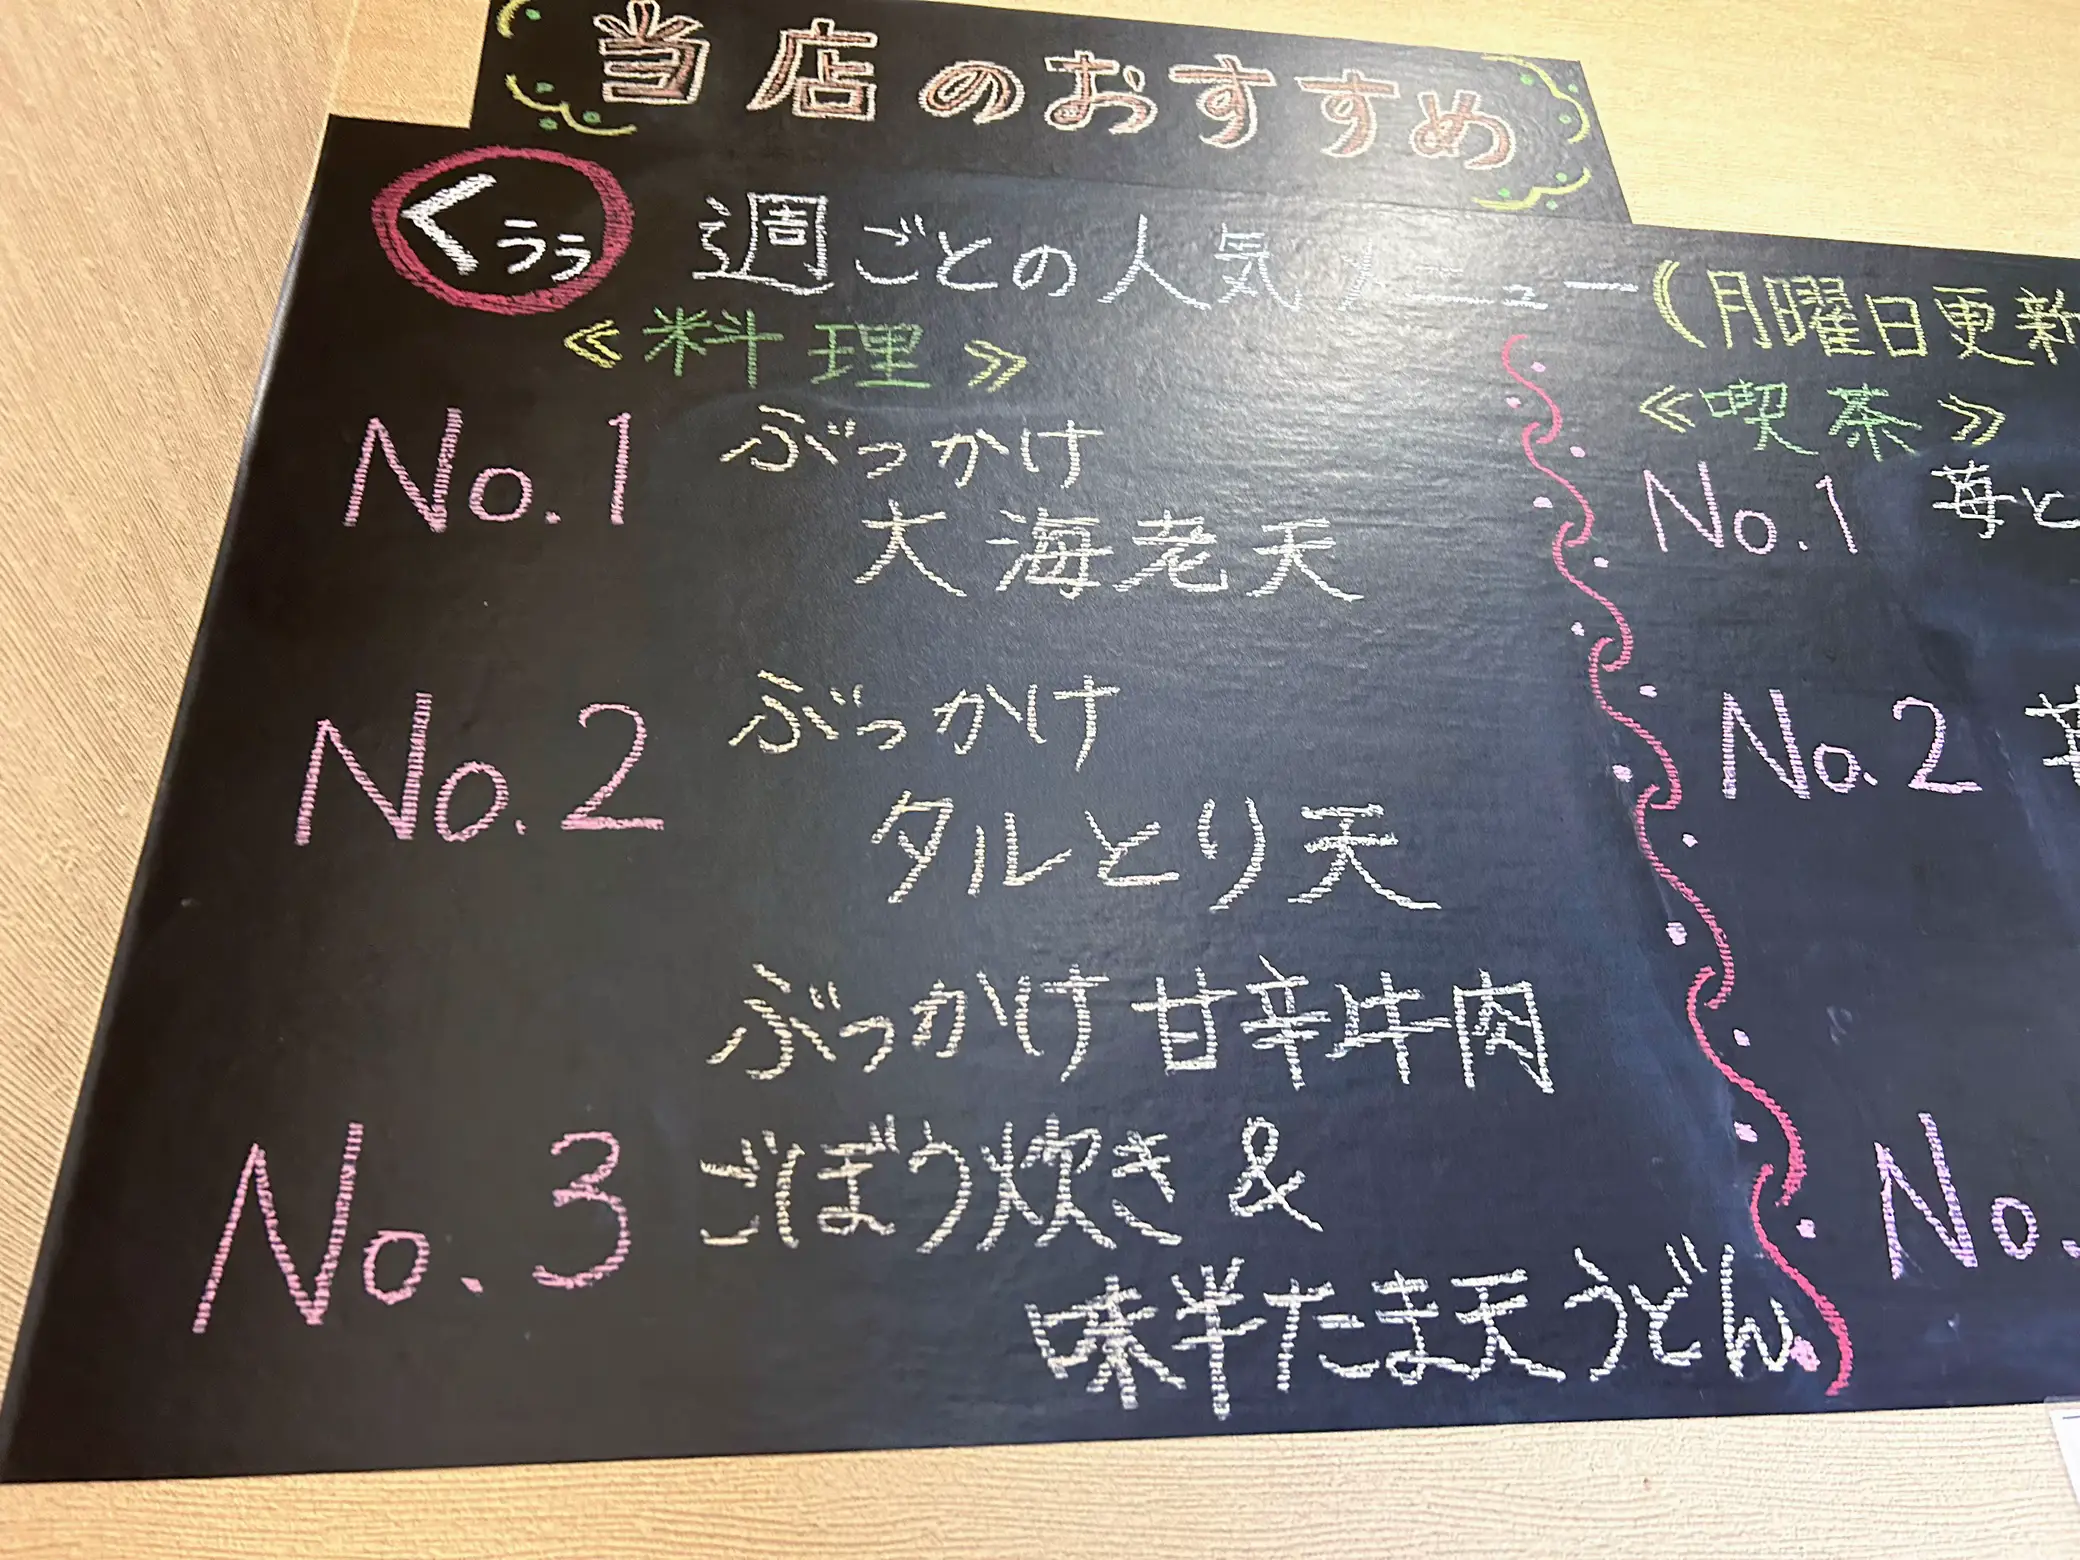 当店のおすすめ
くうう 週ごとの人気メニュー (月曜日更新
《料理》
No.1 ぶっかけ
大海老天
No.2 ぶっかけ
タルとり天
No.3 ぶっかけ甘辛牛肉
ごぼう炊き&
味半たま天うどん
《喫茶》
No.1 苺と
No.2
No.